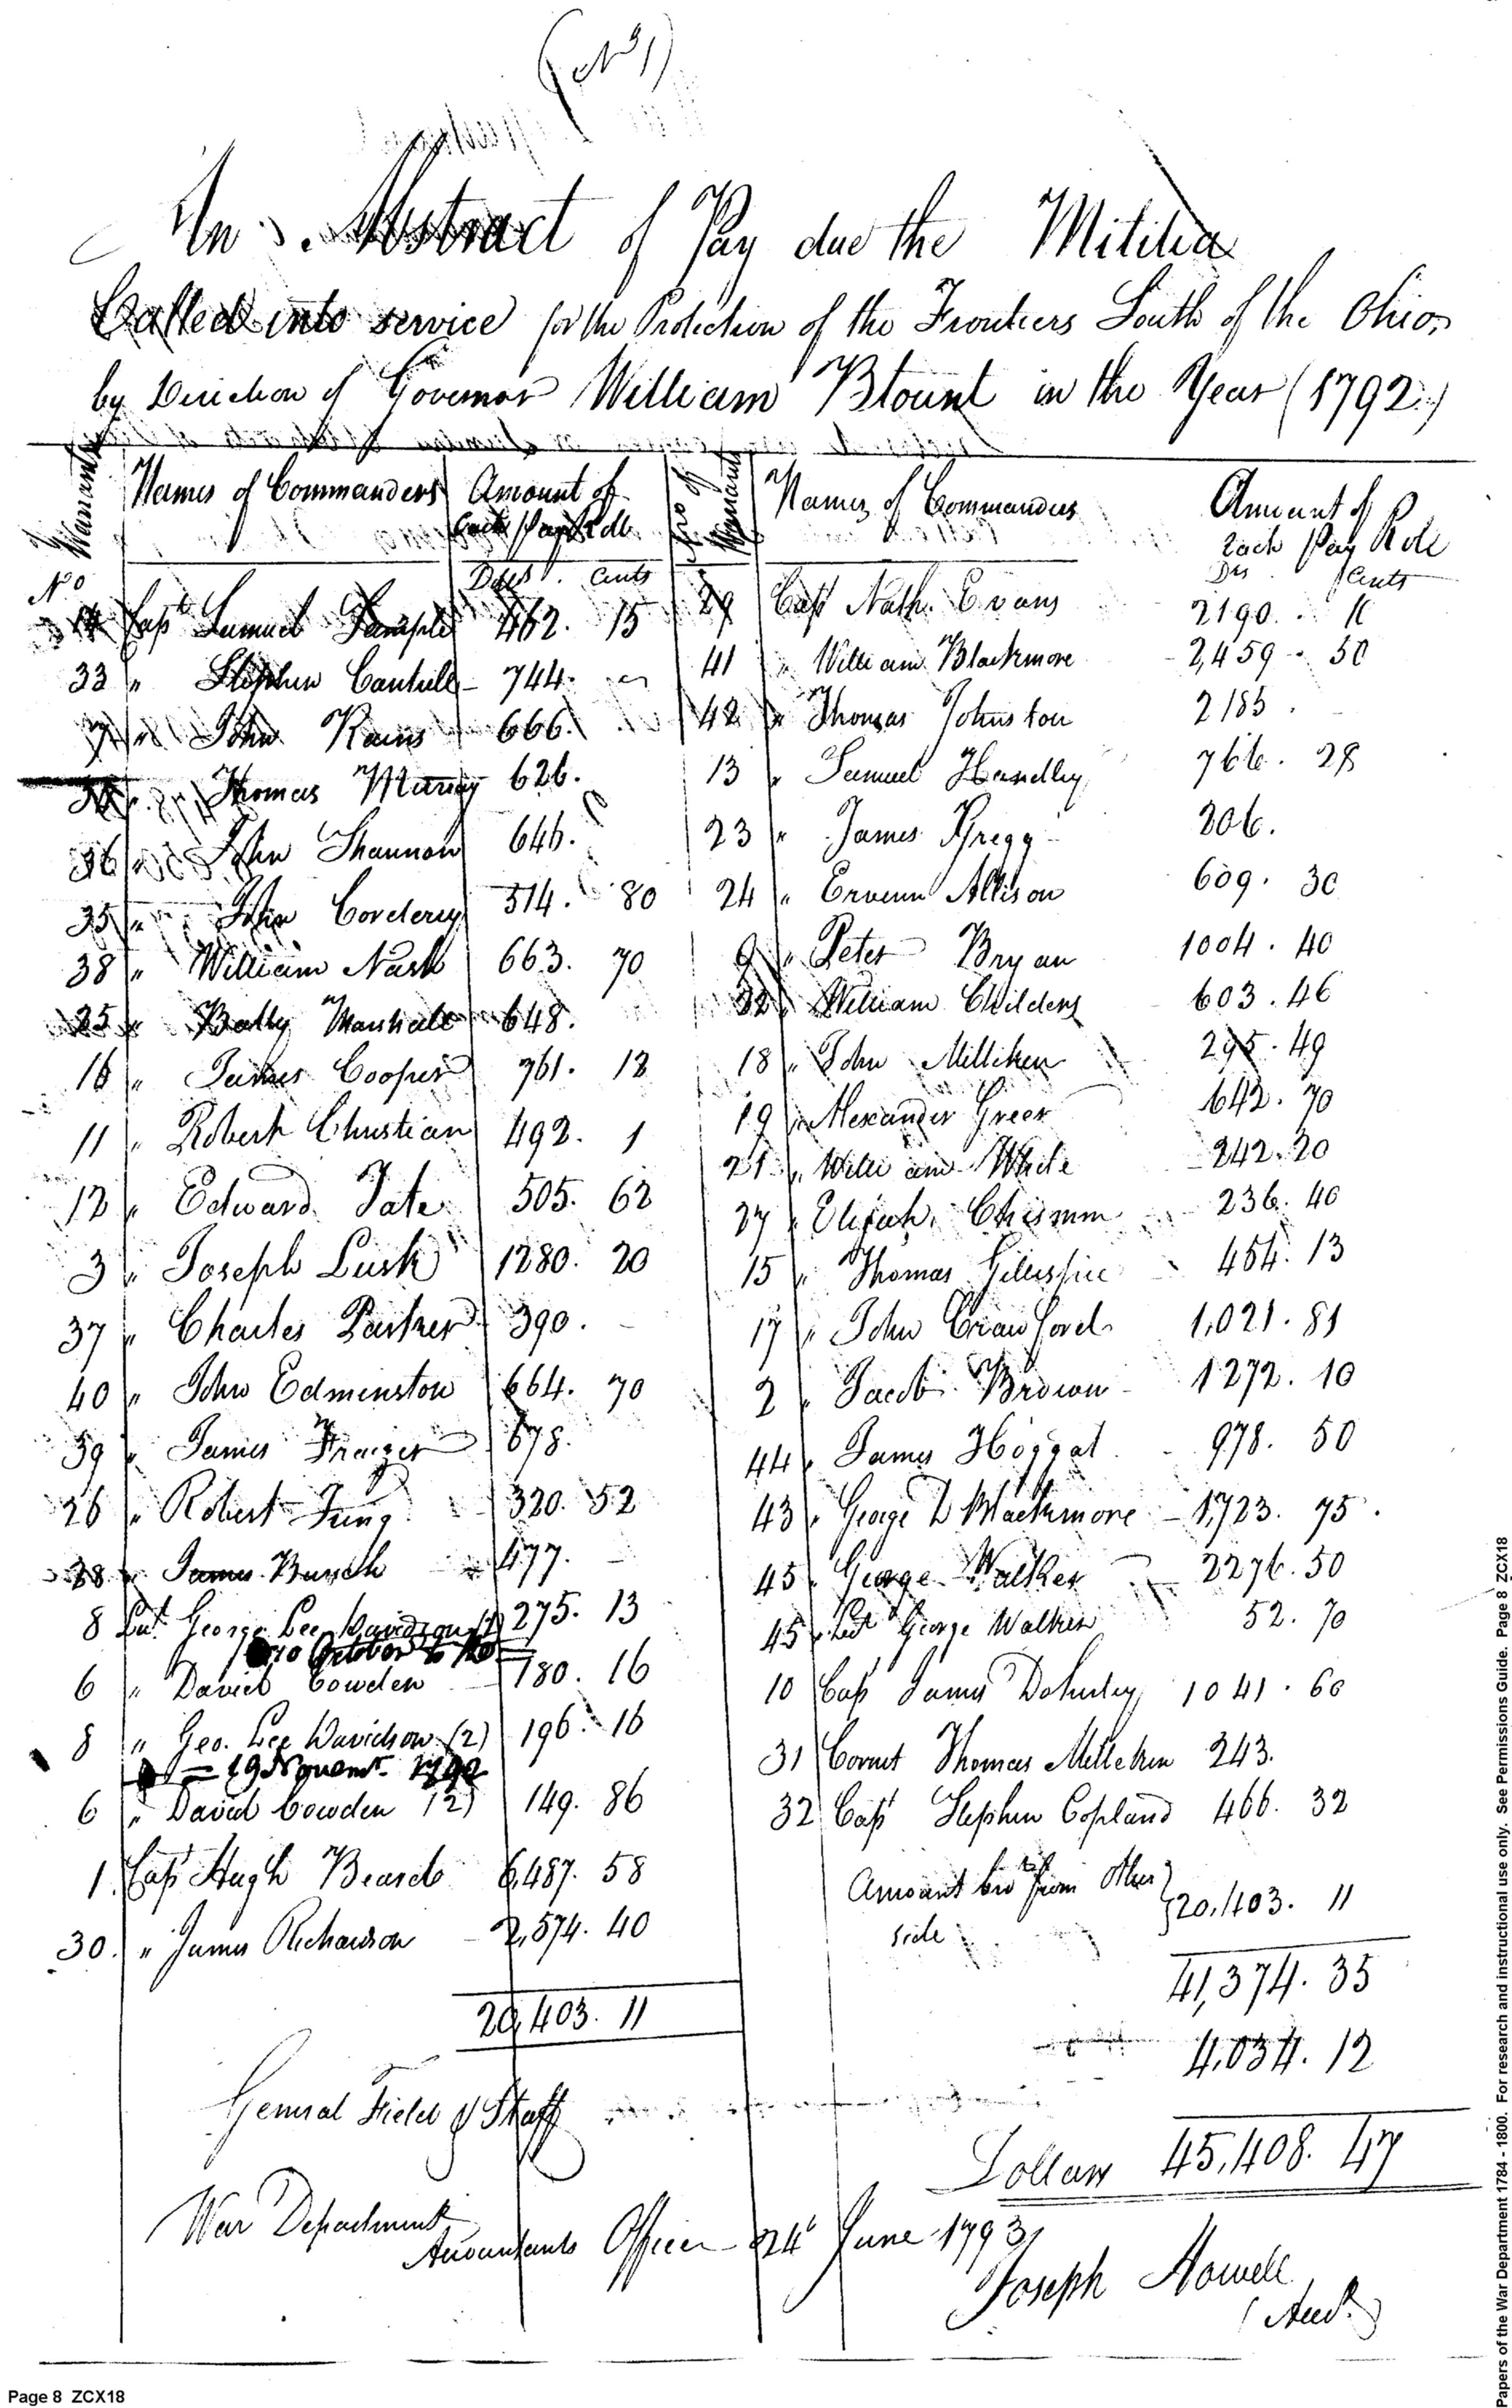 (No 1)
An Abstract of Pay due the Militia
Called into service for the Protection of the Frontiers South of the Ohio,
by Direction of Governor William Blount in the Year (1792)
No Warrants Names of Commanders Amount of each Pay Roll
Dolls. Cents
Capt Samuel Sample 462. 15
33 " Stephen Cantrell - 744.
" John Rains 666.
" Thomas Murray 626.
36 " John Shannon 646.
35 " John Cordery 514. 80
38 " William Nash 663. 70
25 " Marshall 648.
16 " James Cooper 761. 12
11 " Robert Christian 492. 1
12 " Edward Tate 505. 62
3 " Joseph Lusk 1280. 20
37 " Charles Parker 390. -
40 " John Edminston 664. 70
39 " James Frazier 678.
26 " Robert King 320. 52
28 " James 477. -
8 Lut. George Lee Davidson (1) 275. 13
10 October to
6 " David Cowden - 180. 16
8 " Geo. Lee Davidson (2) 196. 16
= 19 Novemr. 1792
6 " David Cowden (2) 149. 86
1 Capt Hugh Beard 6,487. 58
30. " James Richardson - 2,574. 40
20,403. 11
No of Warrants Names of Commanders Amount of each Pay Roll
Drs Cents
29 Capt Nath. Evans 2190.
41 " William Blackmore - 2,459 - 50
42 " Thomas Johnston 2185.
13 " Samuel Handley 766. 28
23 " James Gregg 206.
24 " Allison 609. 30
9 " Peter Bryan 1004. 40
" William Childers 603. 46
18 " John Milliken 295. 49
19 " Alexander Greer 642. 70
21 " William White 242. 20
27 " Elijah Chisum 236. 40
15 " Thomas Gillespie 454. 13
17 " John Crawford 1,021. 81
2 " Jacob Brown - 1272. 10
44 " James Hoggat - 978. 50
43 " George D Blackmore - 1,723. 75.
45 " George Walker 2276. 50
45 " Lut George Walker 52. 70
10 Capt James Doherty 1041. 60
31 Cornet Thomas Milliken 243.
32 Capt Stephen Copland 466. 32
Amount brot from Other side } 20,403. 11
41,374. 35
General Field & Staff 4,034. 12
Dollars 45,408. 47
War Department
Accountants Office - 24 June 1793,
Joseph Howell
(Acct.)
Page 8 ZCX18
Papers of the War Department 1784 - 1800. For research and instructional use only. See Permissions Guide. Page 8 ZCX18